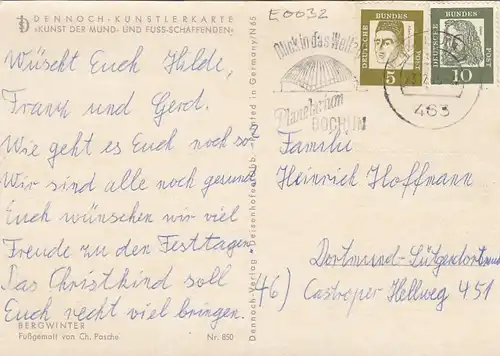 DENNOCH-KÜNSTLERKARTE
»KUNST DER MUND- UND FUSS-SCHAFFENDEN«
Wüscht Euch Hilde,
Frank und Gerd.
Wie geht es Euch noch so?
Wir sind alle noch gesund
Euch wünschen wir viel
Freude zu den Festtagen
Das Christkind soll
Euch recht viel bringen.
BERGWINTER
Fußgemalt von Ch. Pasche
Nr. 850
Dennoch-Verlag - Deisenhofen
Printed in Germany/N65
E0032
Blick in das Weltall
Planetarium
BOCHUM
DEUTSCHE BUNDESPOST
5
DEUTSCHE BUNDESPOST
10
463
Familie
Heinrich Hoffmann
46) Dortmund-Lütgendortmund
Castroper Hellweg 451